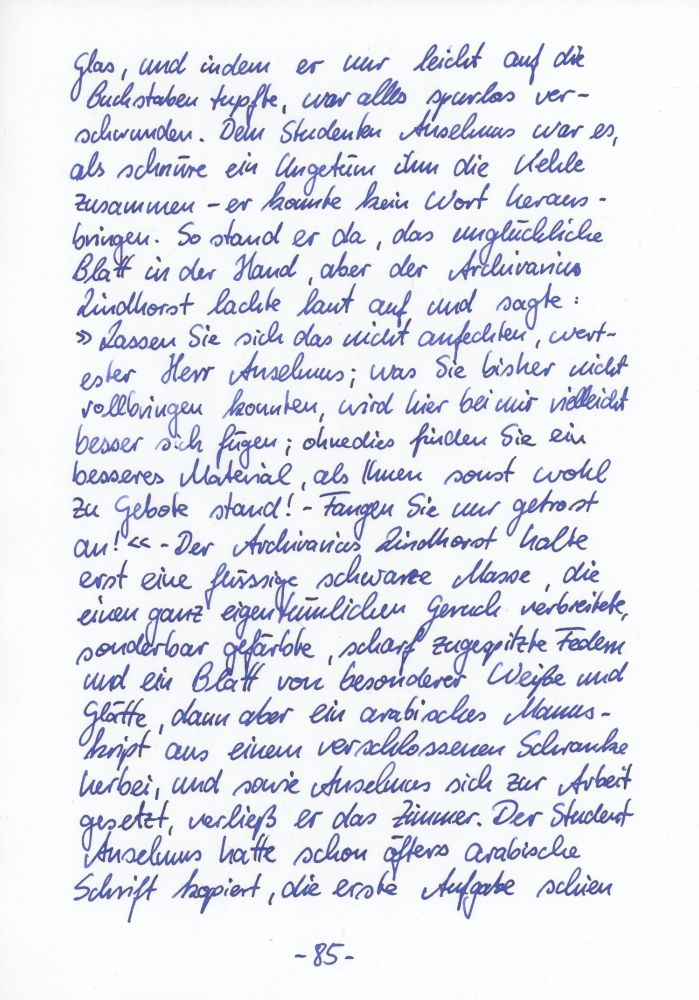 Glas, und indem er nur leicht auf die
Buchstaben tupfte, war alles spurlos ver-
schwunden. Dem Studenten Anselmus war es,
als schnüre ein Ungetüm ihm die Kehle
zusammen - er konnte kein Wort heraus-
bringen. So stand er da, das unglückliche
Blatt in der Hand, aber der Archivarius
Lindhorst lachte laut auf und sagte:
» Lassen Sie sich das nicht anfechten, wert-
ester Herr Anselmus; was Sie bisher nicht
vollbringen konnten, wird hier bei mir vielleicht
besser sich fügen; ohnedies finden Sie ein
besseres Material, als Ihnen sonst wohl
zu Gebote stand! - Fangen Sie nur getrost
an! « - Der Archivarius Lindhorst holte
erst eine flüssige schwarze Masse, die
einen ganz eigentümlichen Geruch verbreitete,
sonderbar gefärbte, scharf zugespitzte Federn
und ein Blatt von besonderer Weiße und
Glätte, dann aber ein arabisches Manus-
kript aus einem verschlossenen Schranke
herbei, und sowie Anselmus sich zur Arbeit
gesetzt, verließ er das Zimmer. Der Student
Anselmus hatte schon öfters arabische
Schrift kopiert, die erste Aufgabe schien
- 85 -